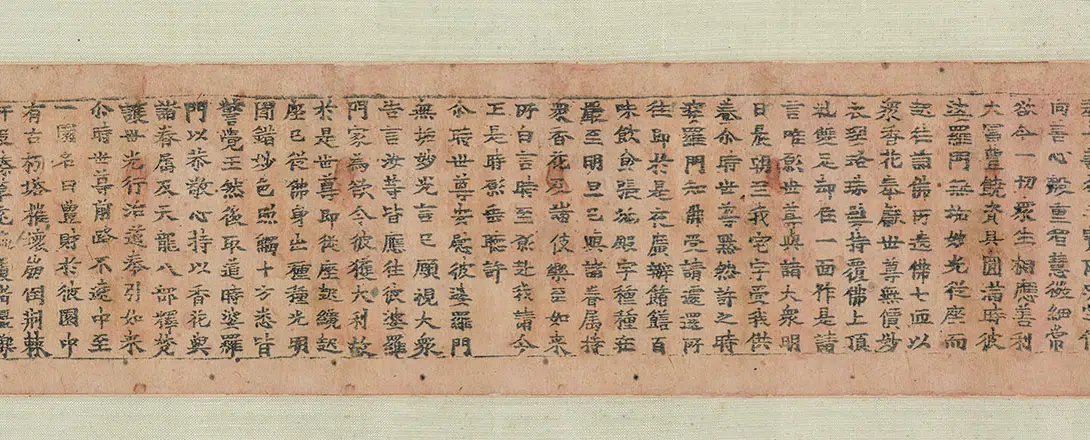 向善心殷重智慧微細常
欲令一切眾生相應善利
大富豐饒資具圓滿時彼
婆羅門無垢妙光從座而
起往詣佛所遶佛七匝以
眾香花奉獻世尊無價妙
衣瓔珞珠鬘持覆佛上頂
礼雙足却住一面作是請
言唯願世尊與諸大衆明
日晨朝至我宅字受我供
養尒時世尊默然許之時
婆羅門知佛受請還還所
住即於是夜廣辦餚饍百
味飲食張施殿宇種種莊
嚴至明旦已與諸眷属持
衆香花及諸伎樂至如来
所白言時至願赴我請今
正是時願垂聽許
尒時世尊安慰彼婆羅門
無垢妙光言已顧視大衆
告言汝等皆應往彼婆羅
門家為欲令彼獲大利故
於是世尊即從座起纔起
座已從佛身出種種光明
間錯妙色照觸十方悉皆
警覺王然後取道時婆羅
門以恭敬心持以香花與
諸眷属及天龍八部釋梵
護世光行治道奉引如来
尒時世尊前路不遠中至
一園名曰豊財於彼園中
有古朽塔摧壞崩倒荊棘